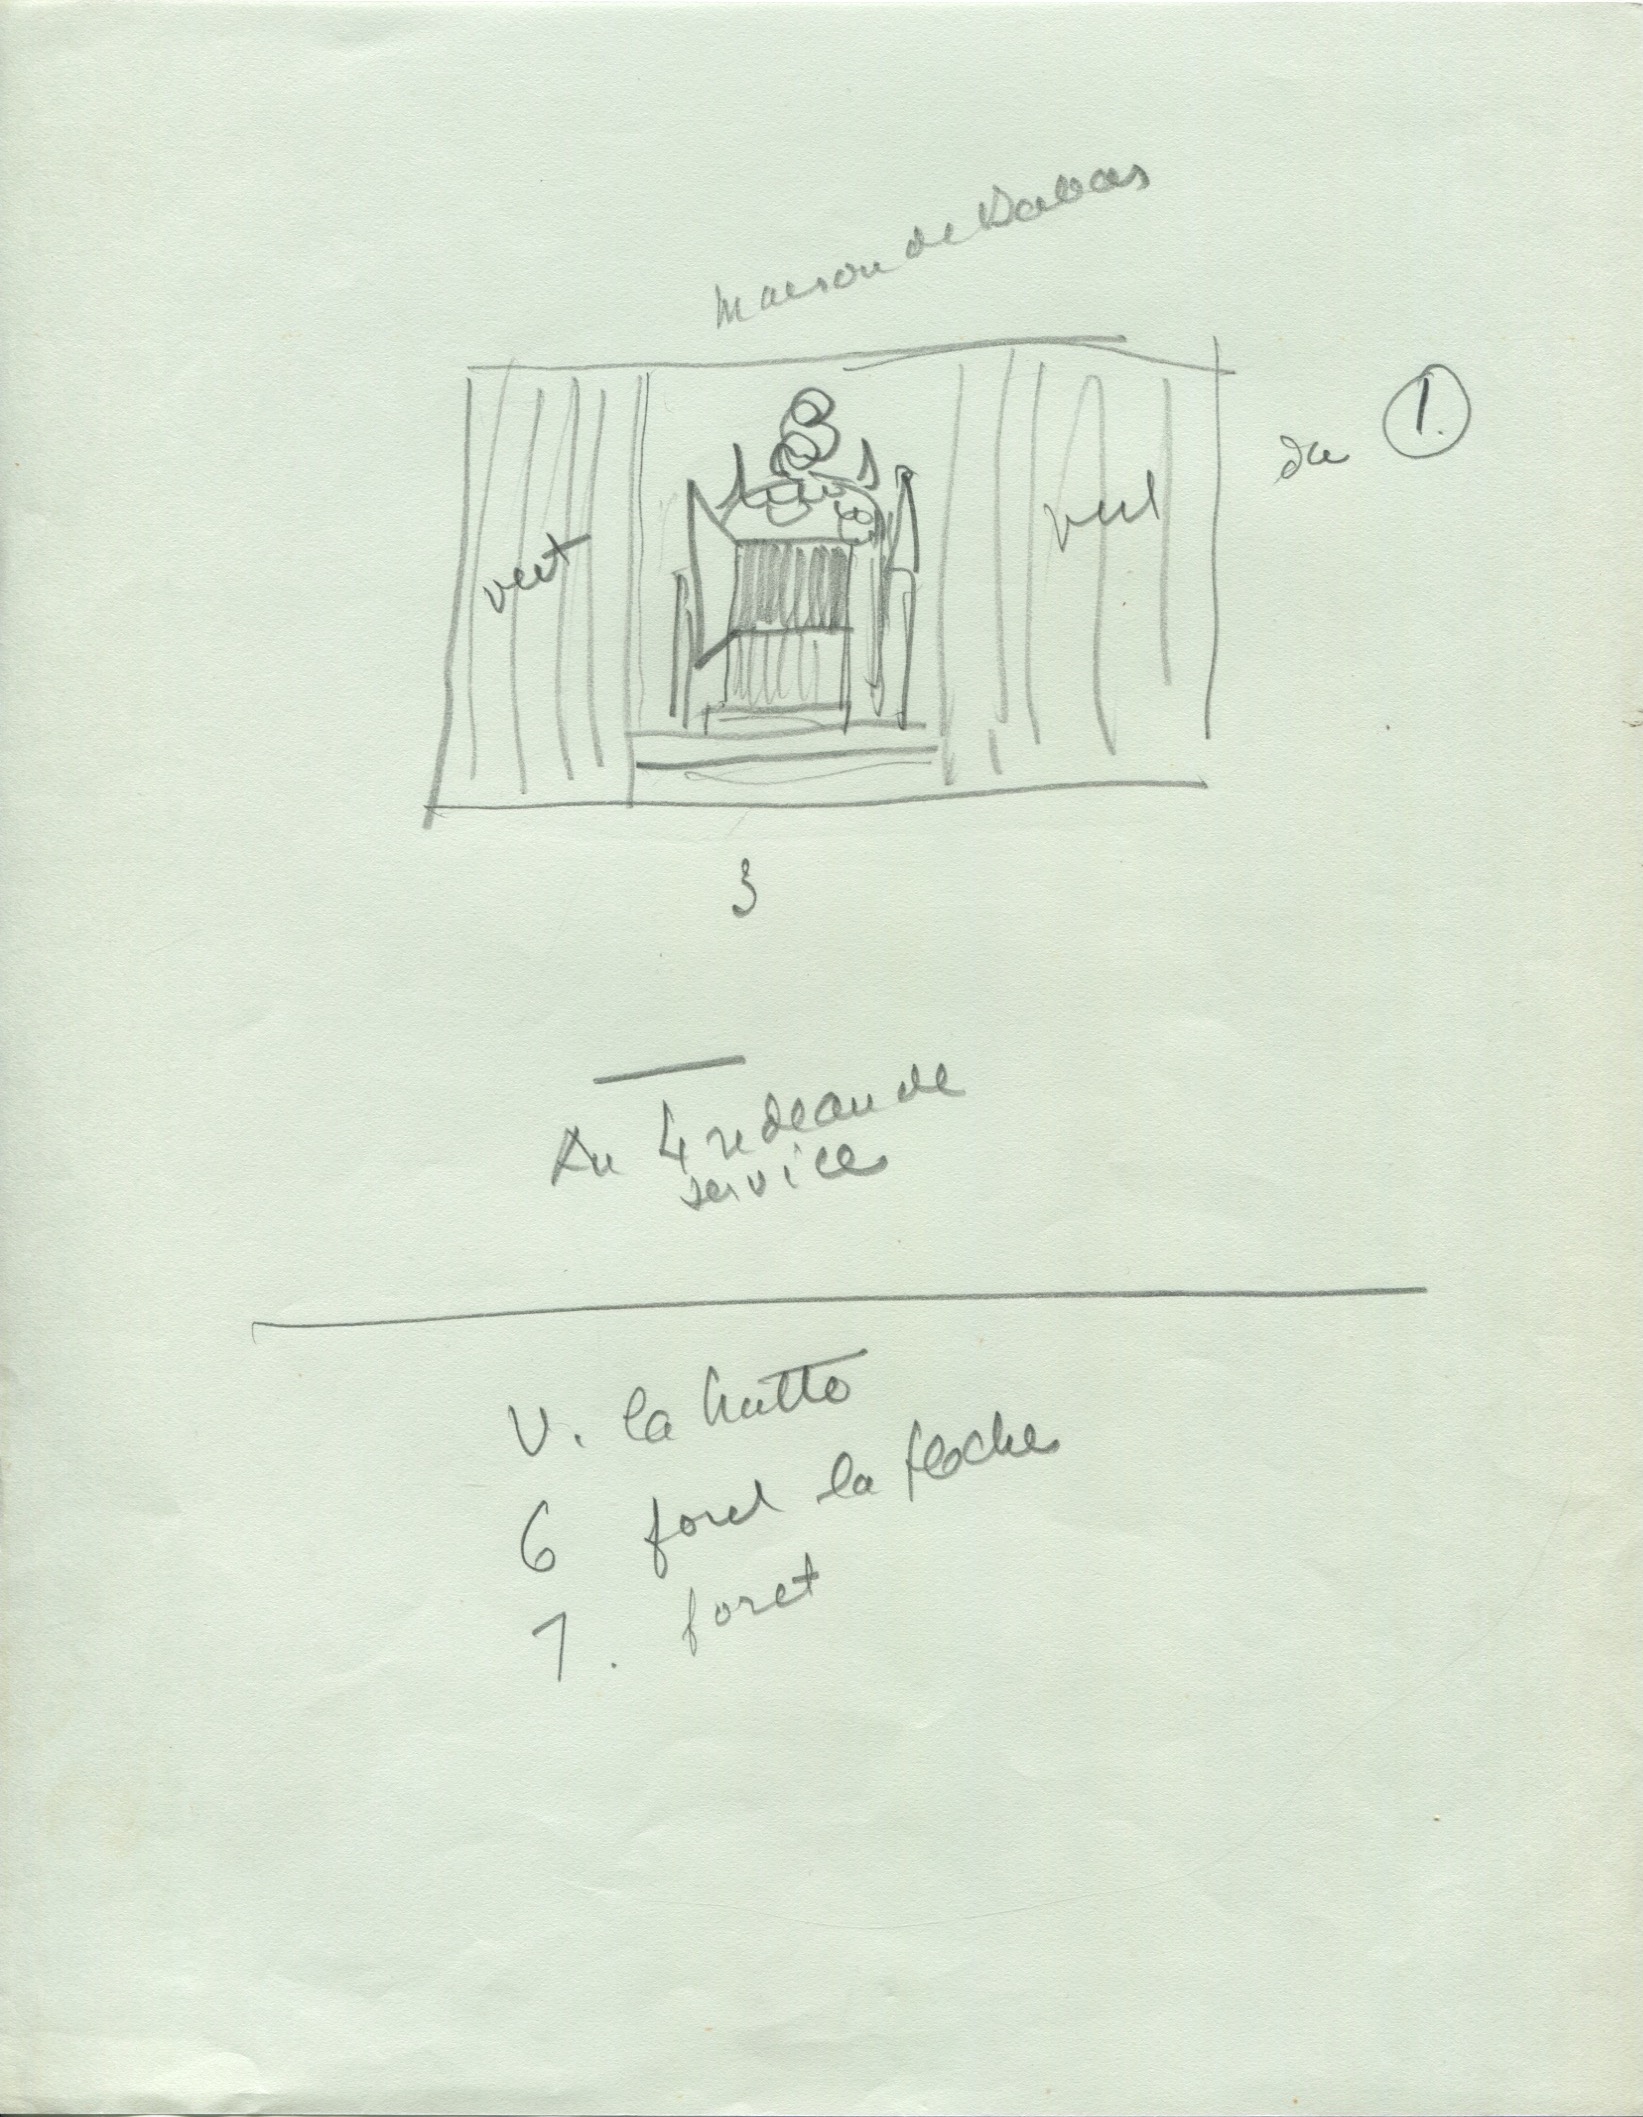 Maison de
du 1.
vert
vert
3
Au 4 redeau de
service
V. la hutte
6 foret la
7. foret